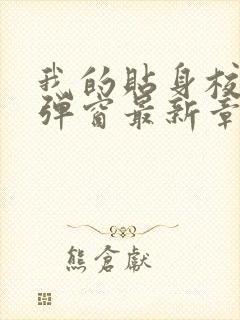 我的貼身校
彈窗最新章
熊倉獻